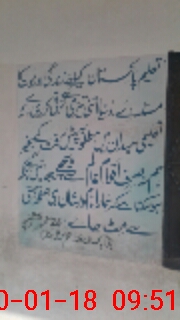 تعلیم پاکستان کیلئے زندگی اور موت کا
مسئلہ ہے دنیا اتنی تیزی سے ترقی کر رہی ہے کہ
تعلیمی میدان میں مطلوبہ پیش رفت کے بغیر
ہم نہ صرف اقوام عالم سے پیچھے رہ جائیں گے بلکہ
ہو سکتا ہے کہ خدانخواستہ ہمارا نام ہی صفحہ ہستی
سے مٹ جائے
0-01-18 09:51